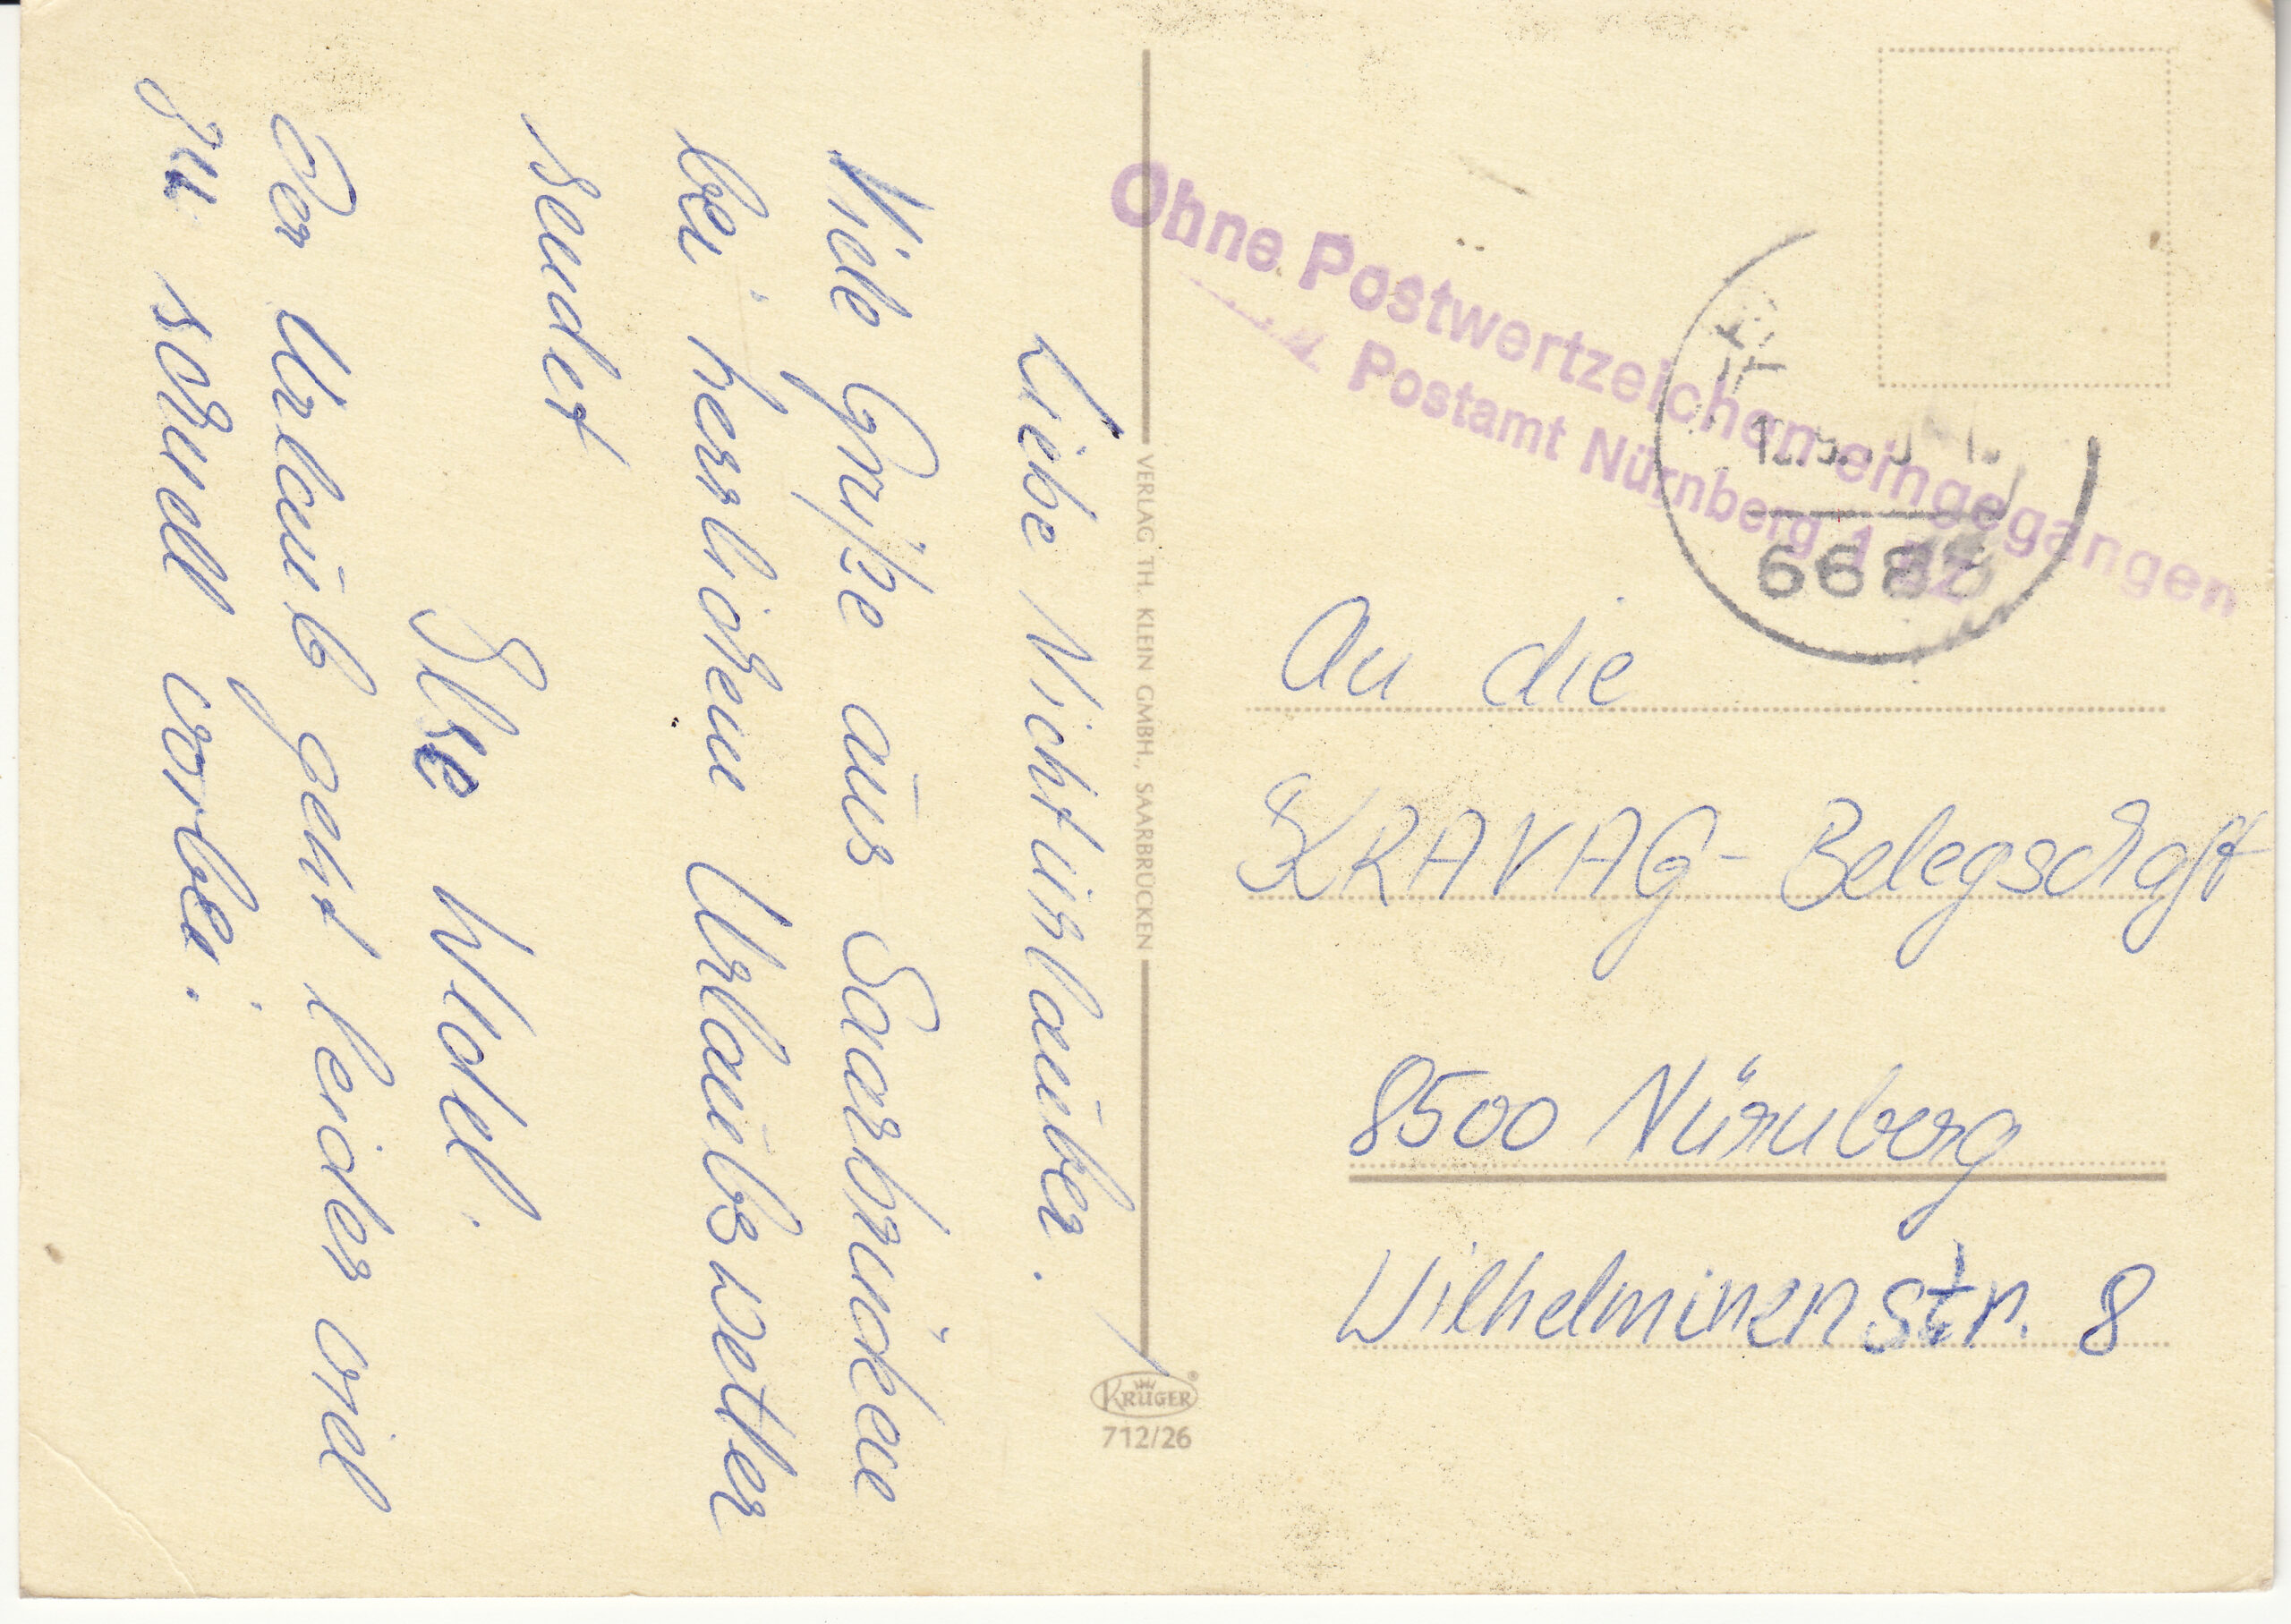 Liebe Nichturlauber.
Viele Grüße aus Saarbrücken
bei herrlichem Urlaubswetter
sendet
Ilse Wodel.
Der Urlaub geht leider viel
zu schnell vorbei.
VERLAG TH. KLEIN GMBH., SAARBRÜCKEN
KRÜGER®
712/26
Ohne Postwertzeichen eingegangen
Postamt Nürnberg 1
An die
KRAVAG-Belegschaft
8500 Nürnberg
Wilhelminenstr. 8